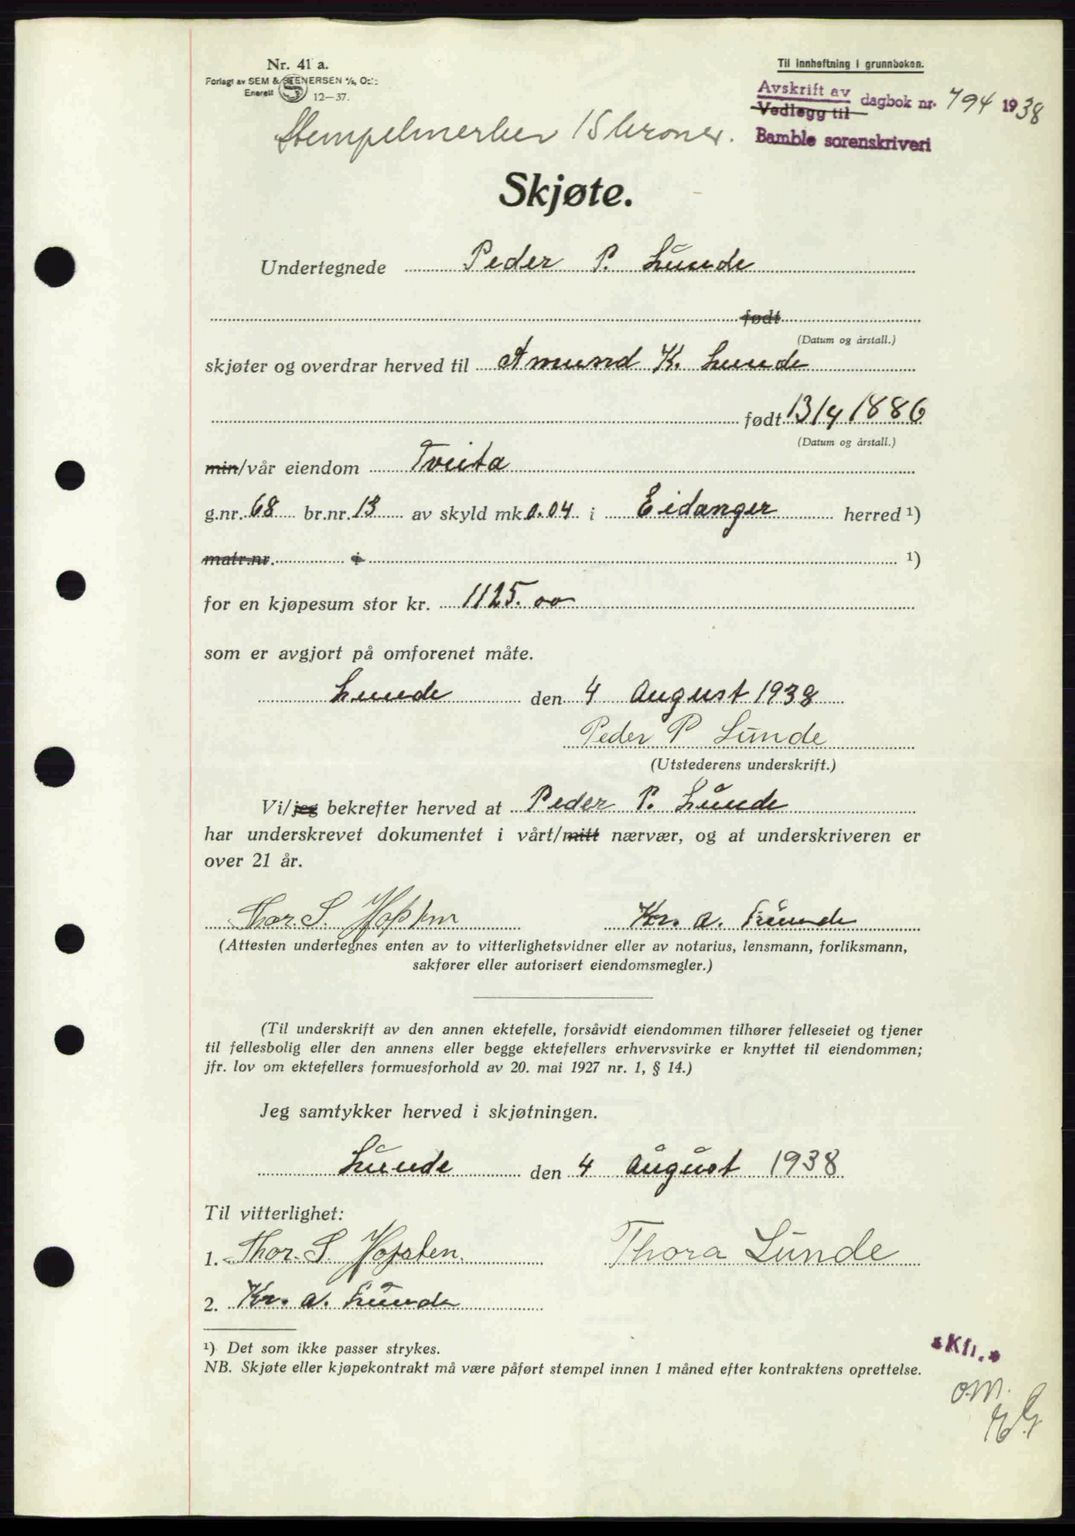 Nr. 41 a.
Forlagt av SEM & STENERSEN A/S, Oslo
Enerett 12—37.
Til innheftning i grunnboken.
Avskrift av
Vedlegg til dagbok nr. 794 1938
Bamble sorenskriveri
Stempelmerker 15 kroner.
Skjøte.
Undertegnede Peder P. Lunde
født
(Datum og årstall.)
skjøter og overdrar herved til Amund K. Lunde
født 13/4 1886
(Datum og årstall.)
min/vår eiendom Tveita
g.nr. 68 br.nr. 13 av skyld mk 0.04 i Eidanger herred ¹)
matr.nr. i ¹)
for en kjøpesum stor kr. 1125.00
som er avgjort på omforenet måte.
Lunde den 4 August 1938
Peder P Lunde
(Utstederens underskrift.)
Vi/jeg bekrefter herved at Peder P. Lunde
har underskrevet dokumentet i vårt/mitt nærvær, og at underskriveren er
over 21 år.
Thor S. Hofsten Kr. A. Lunde
(Attesten undertegnes enten av to vitterlighetsvidner eller av notarius, lensmann, forliksmann,
sakfører eller autorisert eiendomsmegler.)
(Til underskrift av den annen ektefelle, forsåvidt eiendommen tilhører felleseiet og tjener
til fellesbolig eller den annens eller begge ektefellers erhvervsvirke er knyttet til eiendommen;
jfr. lov om ektefellers formuesforhold av 20. mai 1927 nr. 1, § 14.)
Jeg samtykker herved i skjøtningen.
Lunde den 4 August 1938
Til vitterlighet:
1. Thor. S. Hofsten. Thora Lunde
2. Kr. A. Lunde
¹) Det som ikke passer strykes.
NB. Skjøte eller kjøpekontrakt må være påført stempel innen 1 måned efter kontraktens oprettelse.